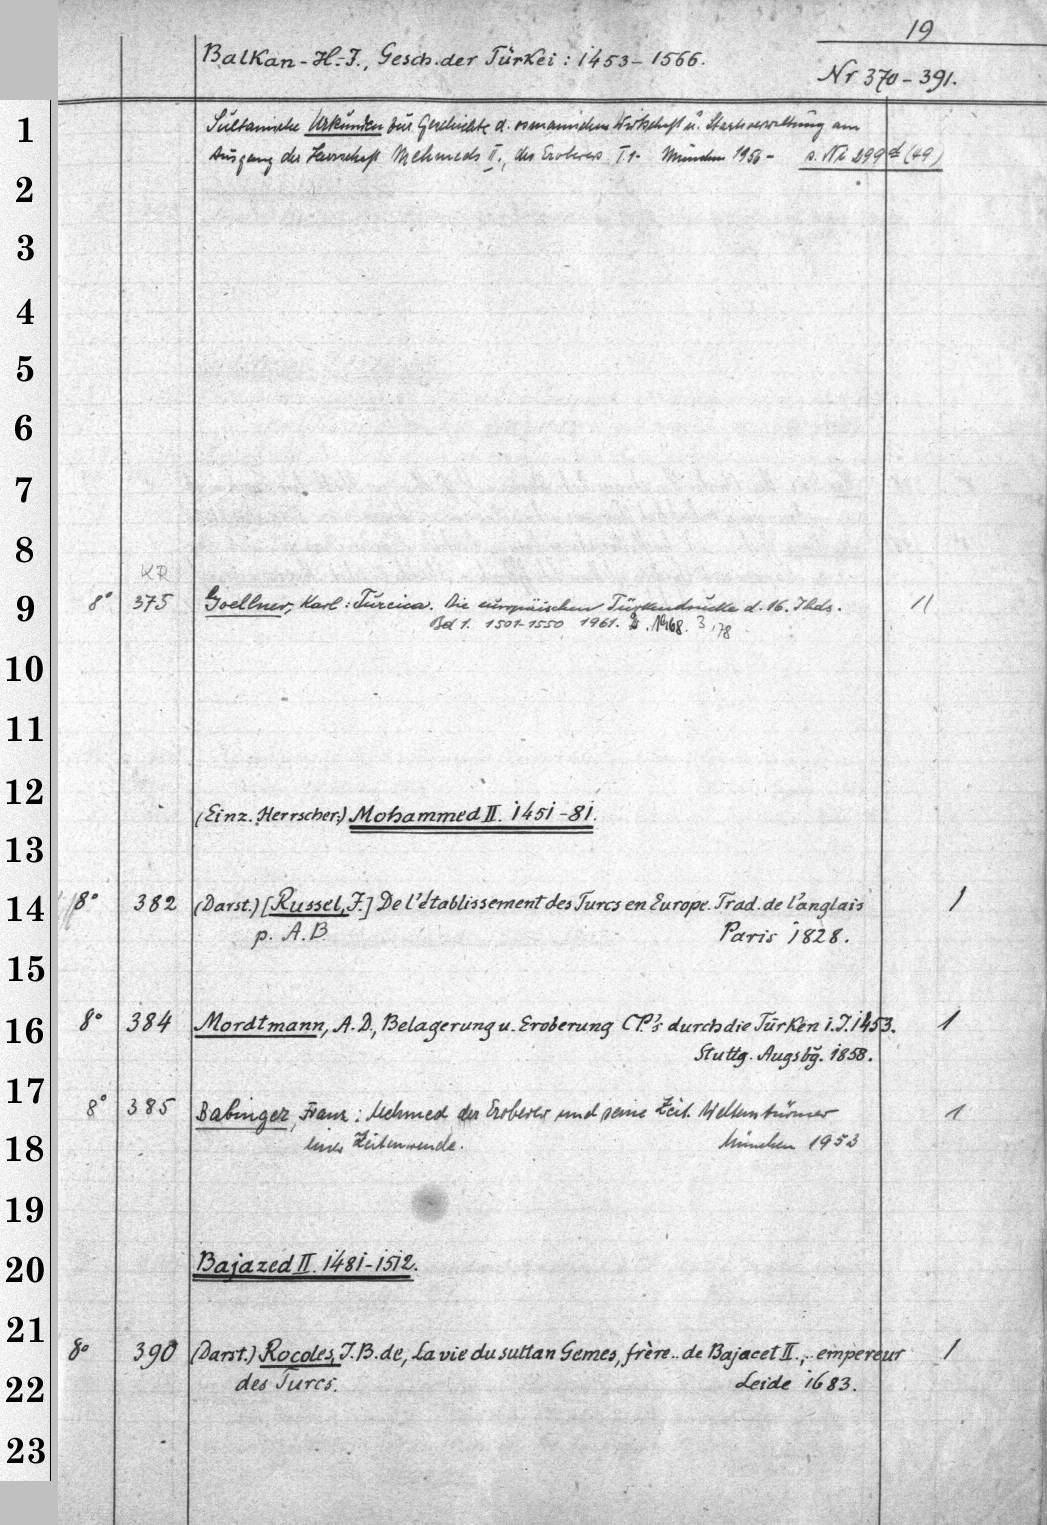 19
Balkan-H.-J., Gesch. der Türkei: 1453-1566.
Nr 370-391.
1
Sultanische Urkunden zur Geschichte d. osmanischen Wirtschaft u. Staatsverwaltung am
2
Ausgang der Herrschaft Mehmeds II., des Eroberers T.1- München 1956- s. Nr 299 d (49)
3
4
5
6
7
8
KR
9
8° 375 Goellner, Karl: Turcica. Die europäischen Türkendrucke d. 16. Jhds. 11
Bd 1. 1501-1550 1961. 2. 1968. 3, 78
10
11
12
(Einz. Herrscher:) Mohammed II. 1451-81.
13
14
8° 382 (Darst.) [Russel, J.] De l'établissement des Turcs en Europe. Trad. de l'anglais 1
p. A.B. Paris 1828.
15
16
8° 384 Mordtmann, A.D., Belagerung u. Eroberung CP's durch die Türken i.J. 1453. 1
Stuttg. Augsbg. 1858.
17
8° 385 Babinger, Franz: Mehmed der Eroberer und seine Zeit. Weltenstürmer 1
18
einer Zeitenwende. München 1953
19
20
Bajazed II. 1481-1512.
21
8° 390 (Darst.) Rocoles, J.B. de, La vie du sultan Gemes, frère de Bajacet II., empereur 1
22
des Turcs. Leide 1683.
23